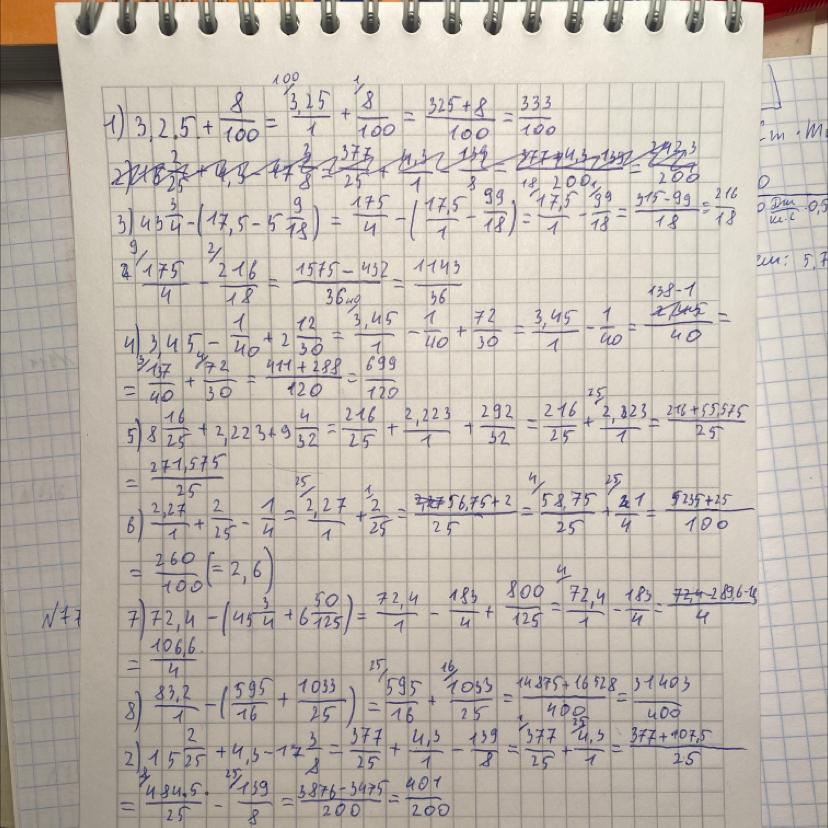 1) 3,2.5 + 8/100 = 100/ 3,25/1 + 1/ 8/100 = (325+8)/100 = 333/100
3) 43 3/4 - (17,5 - 5 9/18) = 175/4 - (17,5/1 - 99/18) = 18/ 17,5/1 - 1/ 99/18 = (315-99)/18 = 216/18
9/ 175/4 - 2/ 216/18 = (1575-432)/36 = 1143/36
4) 3,45 - 1/40 + 2 12/30 = 40/ 3,45/1 - 1/40 + 72/30 = 3,45/1 - 1/40 = (138-1)/40 =
= 3/ 137/40 + 4/ 72/30 = (411+288)/120 = 699/120
5) 8 16/25 + 2,223 + 9 4/32 = 216/25 + 2,223/1 + 292/32 = 216/25 + 25/ 2,223/1 = (216+55,575)/25
= 271,575/25
6) 2,27/1 + 2/25 - 1/4 = 25/ 2,27/1 + 1/ 2/25 = (56,75+2)/25 = 4/ 58,75/25 + 25/ 1/4 = (5235+25)/100
= 260/100 (= 2,6)
7) 72,4 - (45 3/4 + 6 50/125) = 72,4/1 - 183/4 + 800/125 = 4/ 72,4/1 - 183/4 = 289,6-18/4
= 106,6/4
8) 83,2/1 - (595/16 + 1033/25) = 25/ 595/16 + 16/ 1033/25 = (14875+16528)/400 = 31403/400
2) 15 2/25 + 4,3 - 17 3/8 = 377/25 + 4,3/1 - 139/8 = 377/25 + 25/ 4,3/1 = (377+107,5)/25
= 8/ 484.5/25 - 25/ 139/8 = (3876-3475)/200 = 401/200
N77